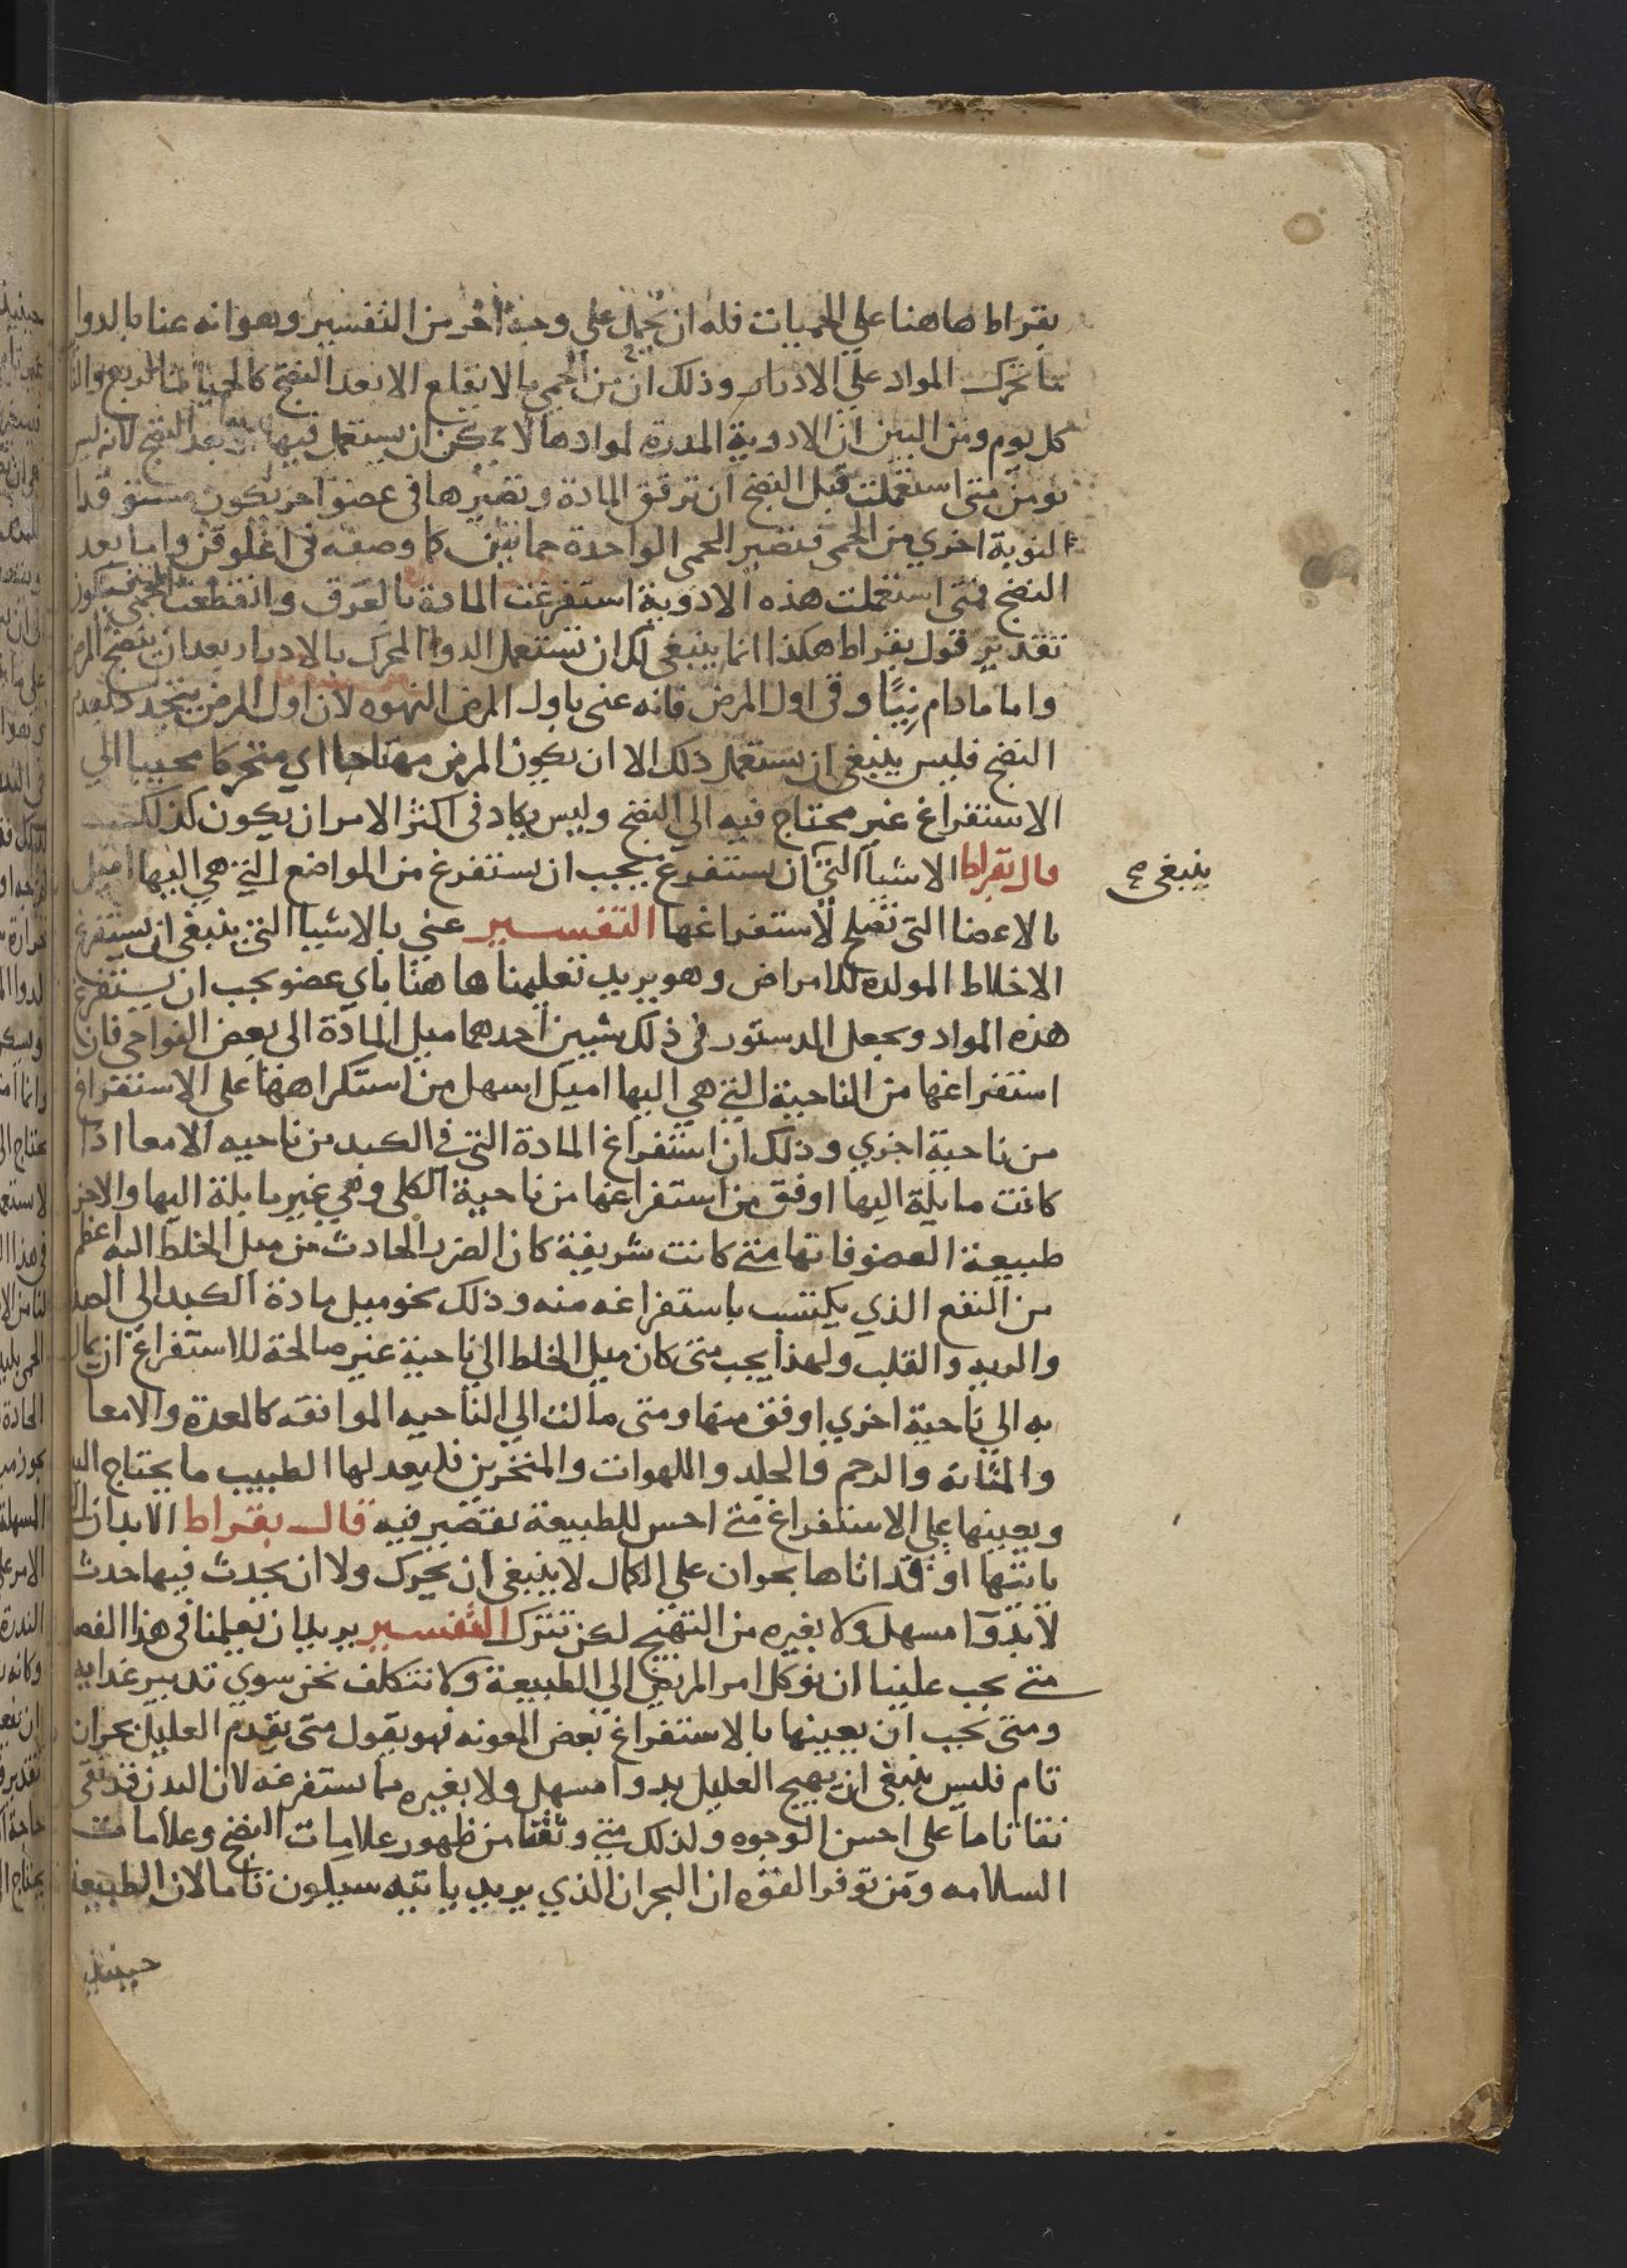 بقراط هاهنا على الحميات فله ان يحمل على وجه اخر من التفسير وهو انه عنا بالدوا
ما يحرك المواد على الادرار وذلك ان من الحمى ما لا يقلع الا بعد النضج كالحميات الربع
كل يوم ومن البين ان الادوية المدرة لموادها لا يمكن ان يستعمل فيها بعد النضج لانه ليس
نومن متى استعملت قبل النضج ان ترقق المادة وتصيرها فى عضو اخر تكون
النوبة اخري من الحمى فتصير الحمى الواحدة حمايتين كما وصفه فى اغلوقن واما بعد
النضج فمتى استعملت هذه الادوية استفرغت المادة بالعرق وانقطعت الحمى فيكون
تقدير قول بقراط هكذا انما ينبغى لك ان تستعمل الدوا المحرك بالادرار بعد ان ينضج المرض
واما مادام نيًا وفى اول المرض فانه عنى باول المرض النهوه لان اول المرض يتحدد بعدم
النضج فليس ينبغى ان يستعمل ذلك الا ان يكون المرض مهتاجا اي متحركا مجيبا الي
الاستفراغ غير محتاج فيه الي النضج وليس يكاد فى اكثر الامر ان يكون كذلك
قال بقراط الاشيا التى ان يستفرغ يجب ان يستفرغ من المواضع التى هي اليها اميل
ينبغى صح
بالاعضا التى تصلح لاستفراغها التفسير عني بالاشيا التى ينبغى ان يستفرغ
الاخلاط المولده للامراض وهو يريد تعليمنا هاهنا باي عضو يجب ان يستفرغ
هذه المواد وجعل الدستور فى ذلك شيين احدهما ميل المادة الى بعض النواحى فان
استفراغها من الناحية التى هي اليها اميل اسهل من استكراهها على الاستفراغ
من ناحية اخري وذلك ان استفراغ المادة التى فى الكبد من ناحيه الامعا اذا
كانت مايلة اليها اوفق من استفراغها من ناحية الكلى وهي غير مايلة اليها والاخر
طبيعة العضو فانها متى كانت شريفة كان الضرر الحادث من ميل الخلط اليه اعظم
من النفع الذي يكتسب باستفراغه منه وذلك نحو ميل مادة الكبد الي الصدر
والريه والقلب ولهذا يجب متى كان ميل الخلط الي ناحية غير صالحة للاستفراغ ان يمال
به الي ناحية اخري اوفق منها ومتى مالت الي الناحيه الموافقه كالمعدة والامعا
والمثانه والرحم والجلد واللهوات والمنخرين فليعد لها الطبيب ما يحتاج اليه
ويعينها علي الاستفراغ متى احس للطبيعة بتقصير فيه قال بقراط الابدان التى
ياتيها او قد اتاها بحران علي الكمال لا ينبغى ان يحرك ولا ان يحدث فيها حدث
لا بدوا مسهل ولا بغيره من التهيج لكن تترك التفسير يريد ان يعلمنا فى هذا الفصل
متى يجب علينا ان نوكل امر المريض الي الطبيعة ولا نتكلف نحن سوي تدبير غدايه
ومتى يجب ان يعينها بالاستفراغ بعض المعونه فهو يقول متى تقدم العليل بحران
تام فليس ينبغى ان يهيج العليل بدوا مسهل ولا بغيره مما يستفرغه لان البدن قد نقى
نقا تاما على احسن الوجوه ولذلك متى وثقنا من ظهور علامات النضج وعلامات
السلامه ومن توفر القوه ان البحران الذي يريد ياتيه سيكون تاما لان الطبيعة
حينيذ